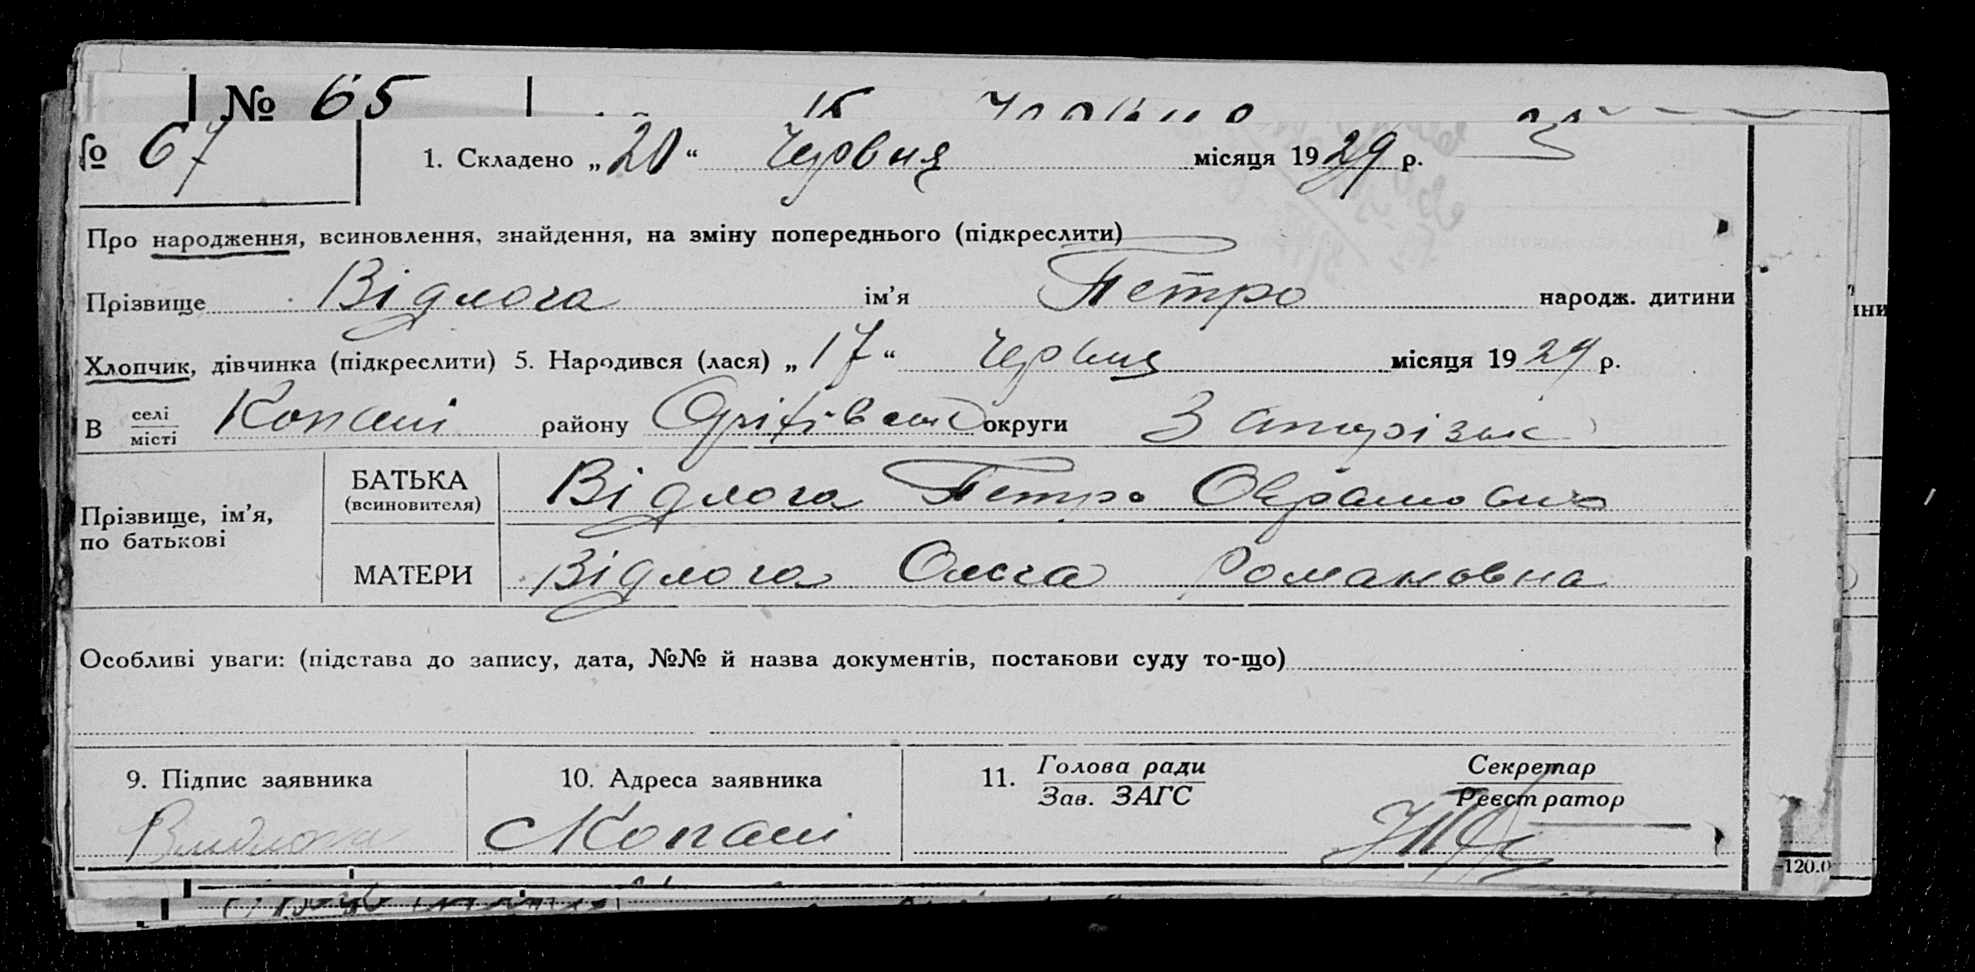 № 65
№ 67 1. Складено „20“ Червня місяця 1929 р.
Про народження, всиновлення, знайдення, на зміну попереднього (підкреслити)
Прізвище Відлога ім’я Петро народж. дитини
Хлопчик, дівчинка (підкреслити) 5. Народився (лася) „17“ Червня місяця 1929 р.
В селі місті Копані району Оріхівськ округи Запорізьк
Прізвище, ім’я, по батькові
БАТЬКА (всиновителя) Відлога Петро
МАТЕРИ Відлога Ольга Романовна
Особливі уваги: (підстава до запису, дата, №№ й назва документів, постанови суду то-що)
9. Підпис заявника 10. Адреса заявника 11. Голова ради Секретар
Зав. ЗАГС Реєстратор
Копані
120.0